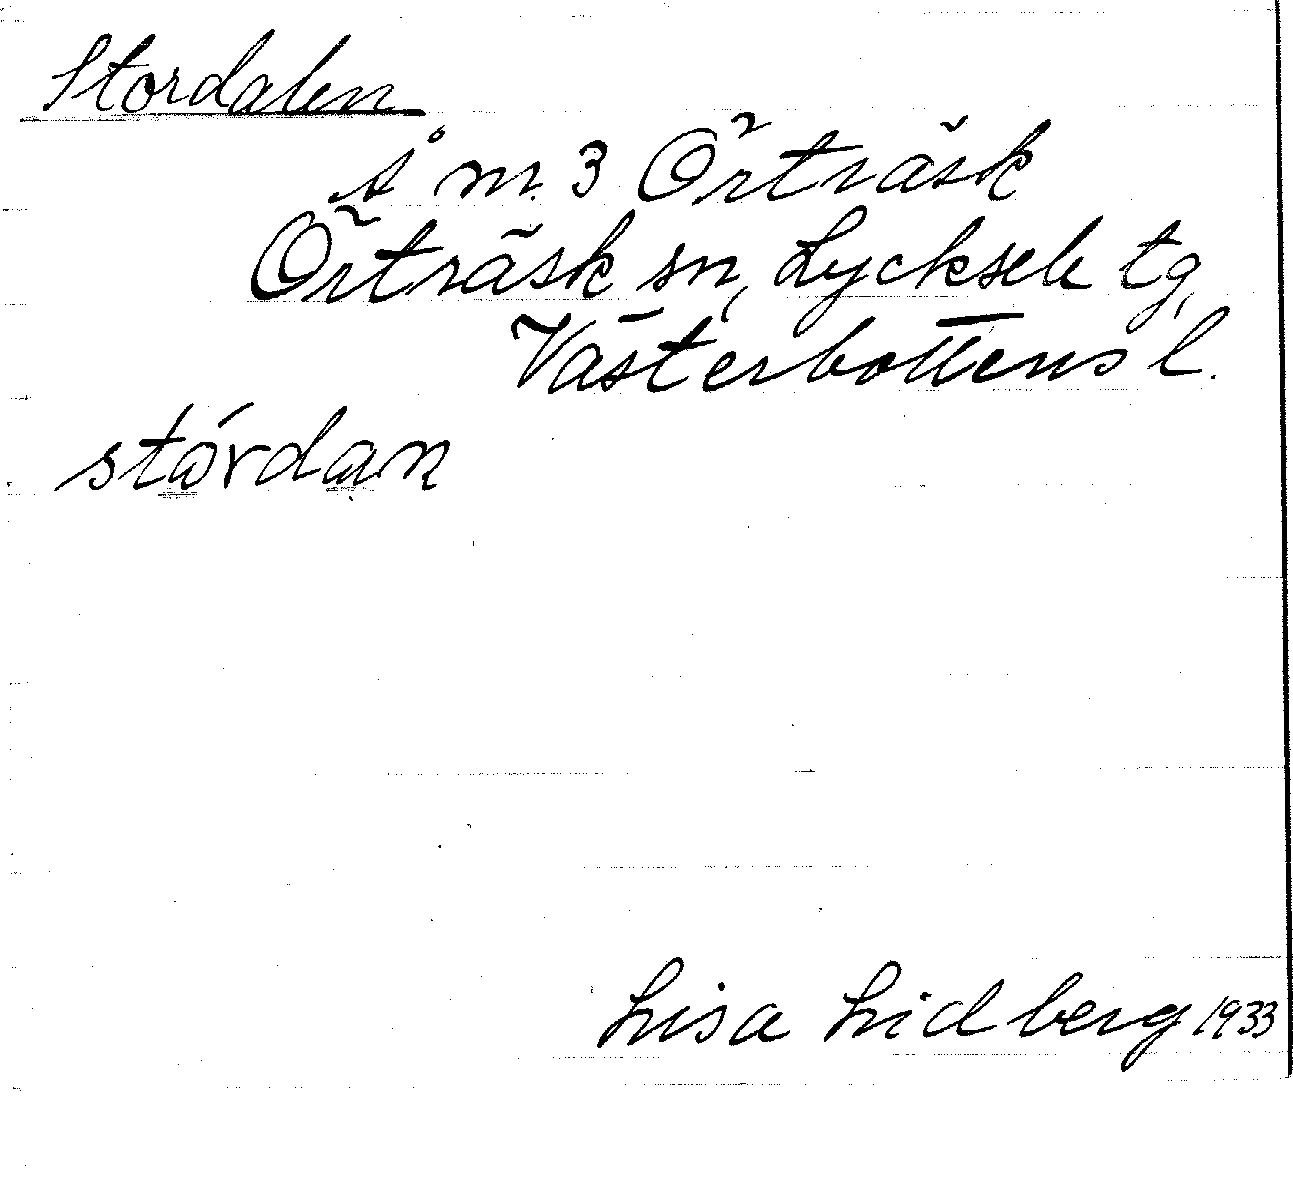 Stordalen
å nr. 3 Örträsk
Örträsk sn, Lycksele tg,
Västerbottens l.
stórdan
Lisa Lidberg 1933